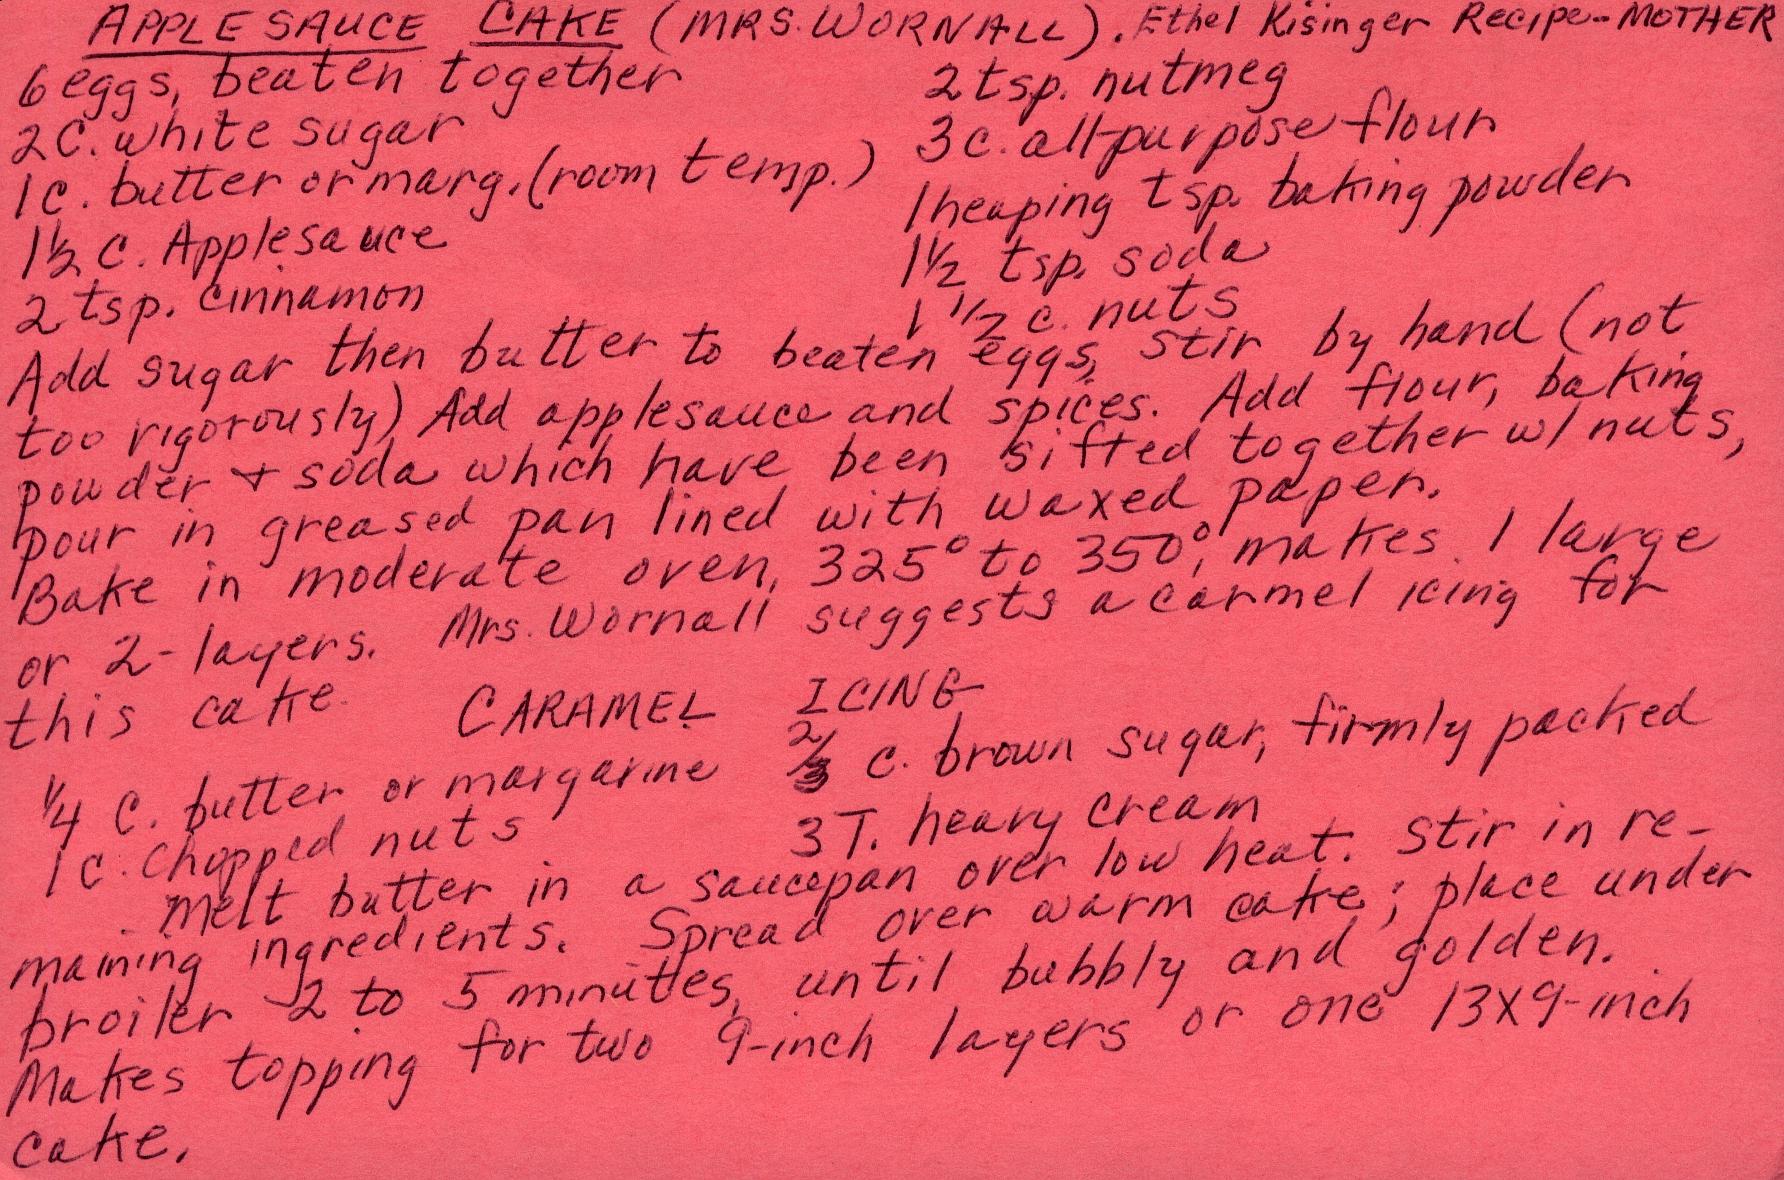 APPLESAUCE CAKE (MRS. WORNALL). Ethel Kisinger Recipe-MOTHER
6 eggs, beaten together
2 C. white sugar
1 C. butter or marg. (room temp.)
1 1/2 C. Applesauce
2 tsp. cinnamon
2 tsp. nutmeg
3 c. all-purpose flour
1 heaping tsp. baking powder
1 1/2 tsp. soda
1 1/2 c. nuts
Add sugar then butter to beaten eggs, stir by hand (not
too rigorously) Add applesauce and spices. Add flour, baking
powder + soda which have been sifted together w/ nuts,
pour in greased pan lined with waxed paper.
Bake in moderate oven, 325° to 350°, makes 1 large
or 2-layers. Mrs. Wornall suggests a carmel icing for
this cake.
CARAMEL ICING
1/4 C. butter or margarine
1 C. chopped nuts
2/3 C. brown sugar, firmly packed
3 T. heavy cream
Melt butter in a saucepan over low heat. Stir in re-
maining ingredients. Spread over warm cake; place under
broiler 2 to 5 minutes, until bubbly and golden.
Makes topping for two 9-inch layers or one 13X9-inch
cake.